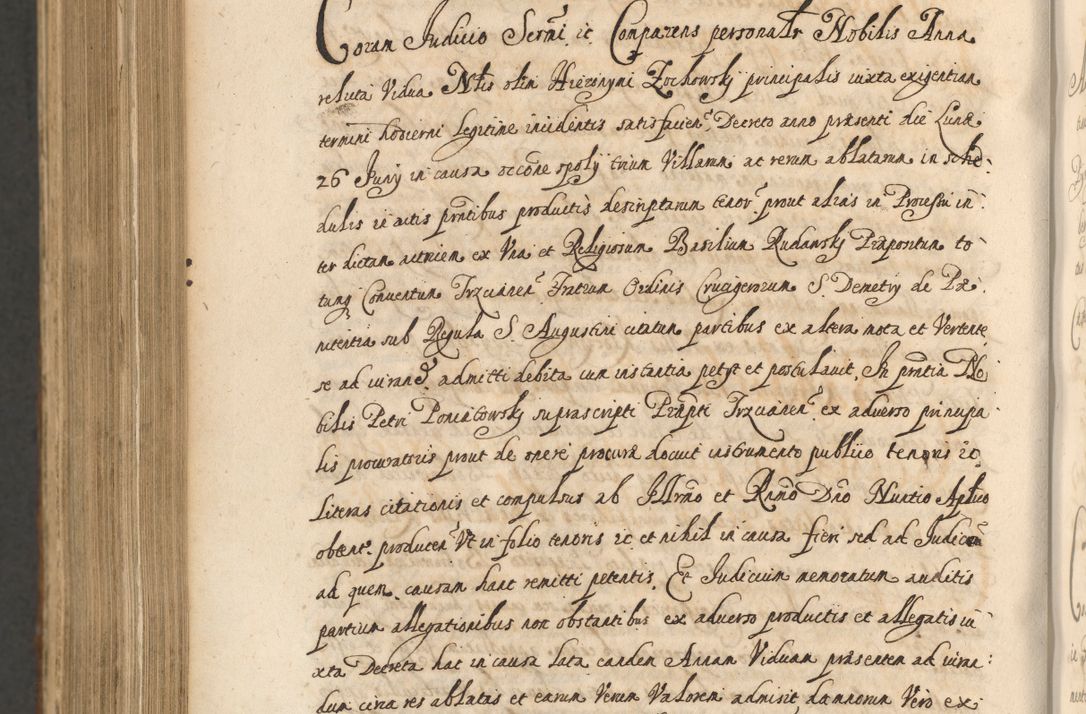 Coram Judicio Sermi. ic Comparens personalr Nobilis Anna
relicta Vidua Nlis olim Hieronymi Zochowsky principalis iuxta exigentiam
termini hodierni legitime incidentis satisfacien. Decreto anno præsenti die Lunæ
26 Junÿ in causa occõne spolÿ trium Villarum ac rerum ablatarum in sche-
dulis in actis pntibus productis descriptarum tenor. prout alias in Processu in
ter dictam actricem ex Vna et Religiosum Basilium Rudansky Præpositum to
tunq Conventum Trzcianen. Fratrum Ordinis Crucigerorum S. Demetry de Pæ
nitentia sub Regula S. Augustini citatum partibus ex altera mota et Vertente
se ad iurand. admitti debita cum instantia petÿt et postulavit. In pntia No
bilis Petri Poniatowsky suprascripti Præpti Trzcianen. ex adverso principa
lis procuratoris prout de onere procuræ docuit instrumento publico tenoris ic
literas citationis et compulsus ab Illrmo et Rmo Dno Nuntio Aplico
obtent. producen Vt in folio tenoris ic et nihil in causa fieri sed ad Judicem
ad quem causam hanc remitti petentis. Et Judicium memoratum auditis
partium allegationibus non obstantibus ex adverso productis et allegatis iu
xta Decreta hac in causa lata eandem Annam Viduam præsentem ad iuran
dum circa res ablatas et earum Verum Valorem admisit damnorum Vero ex